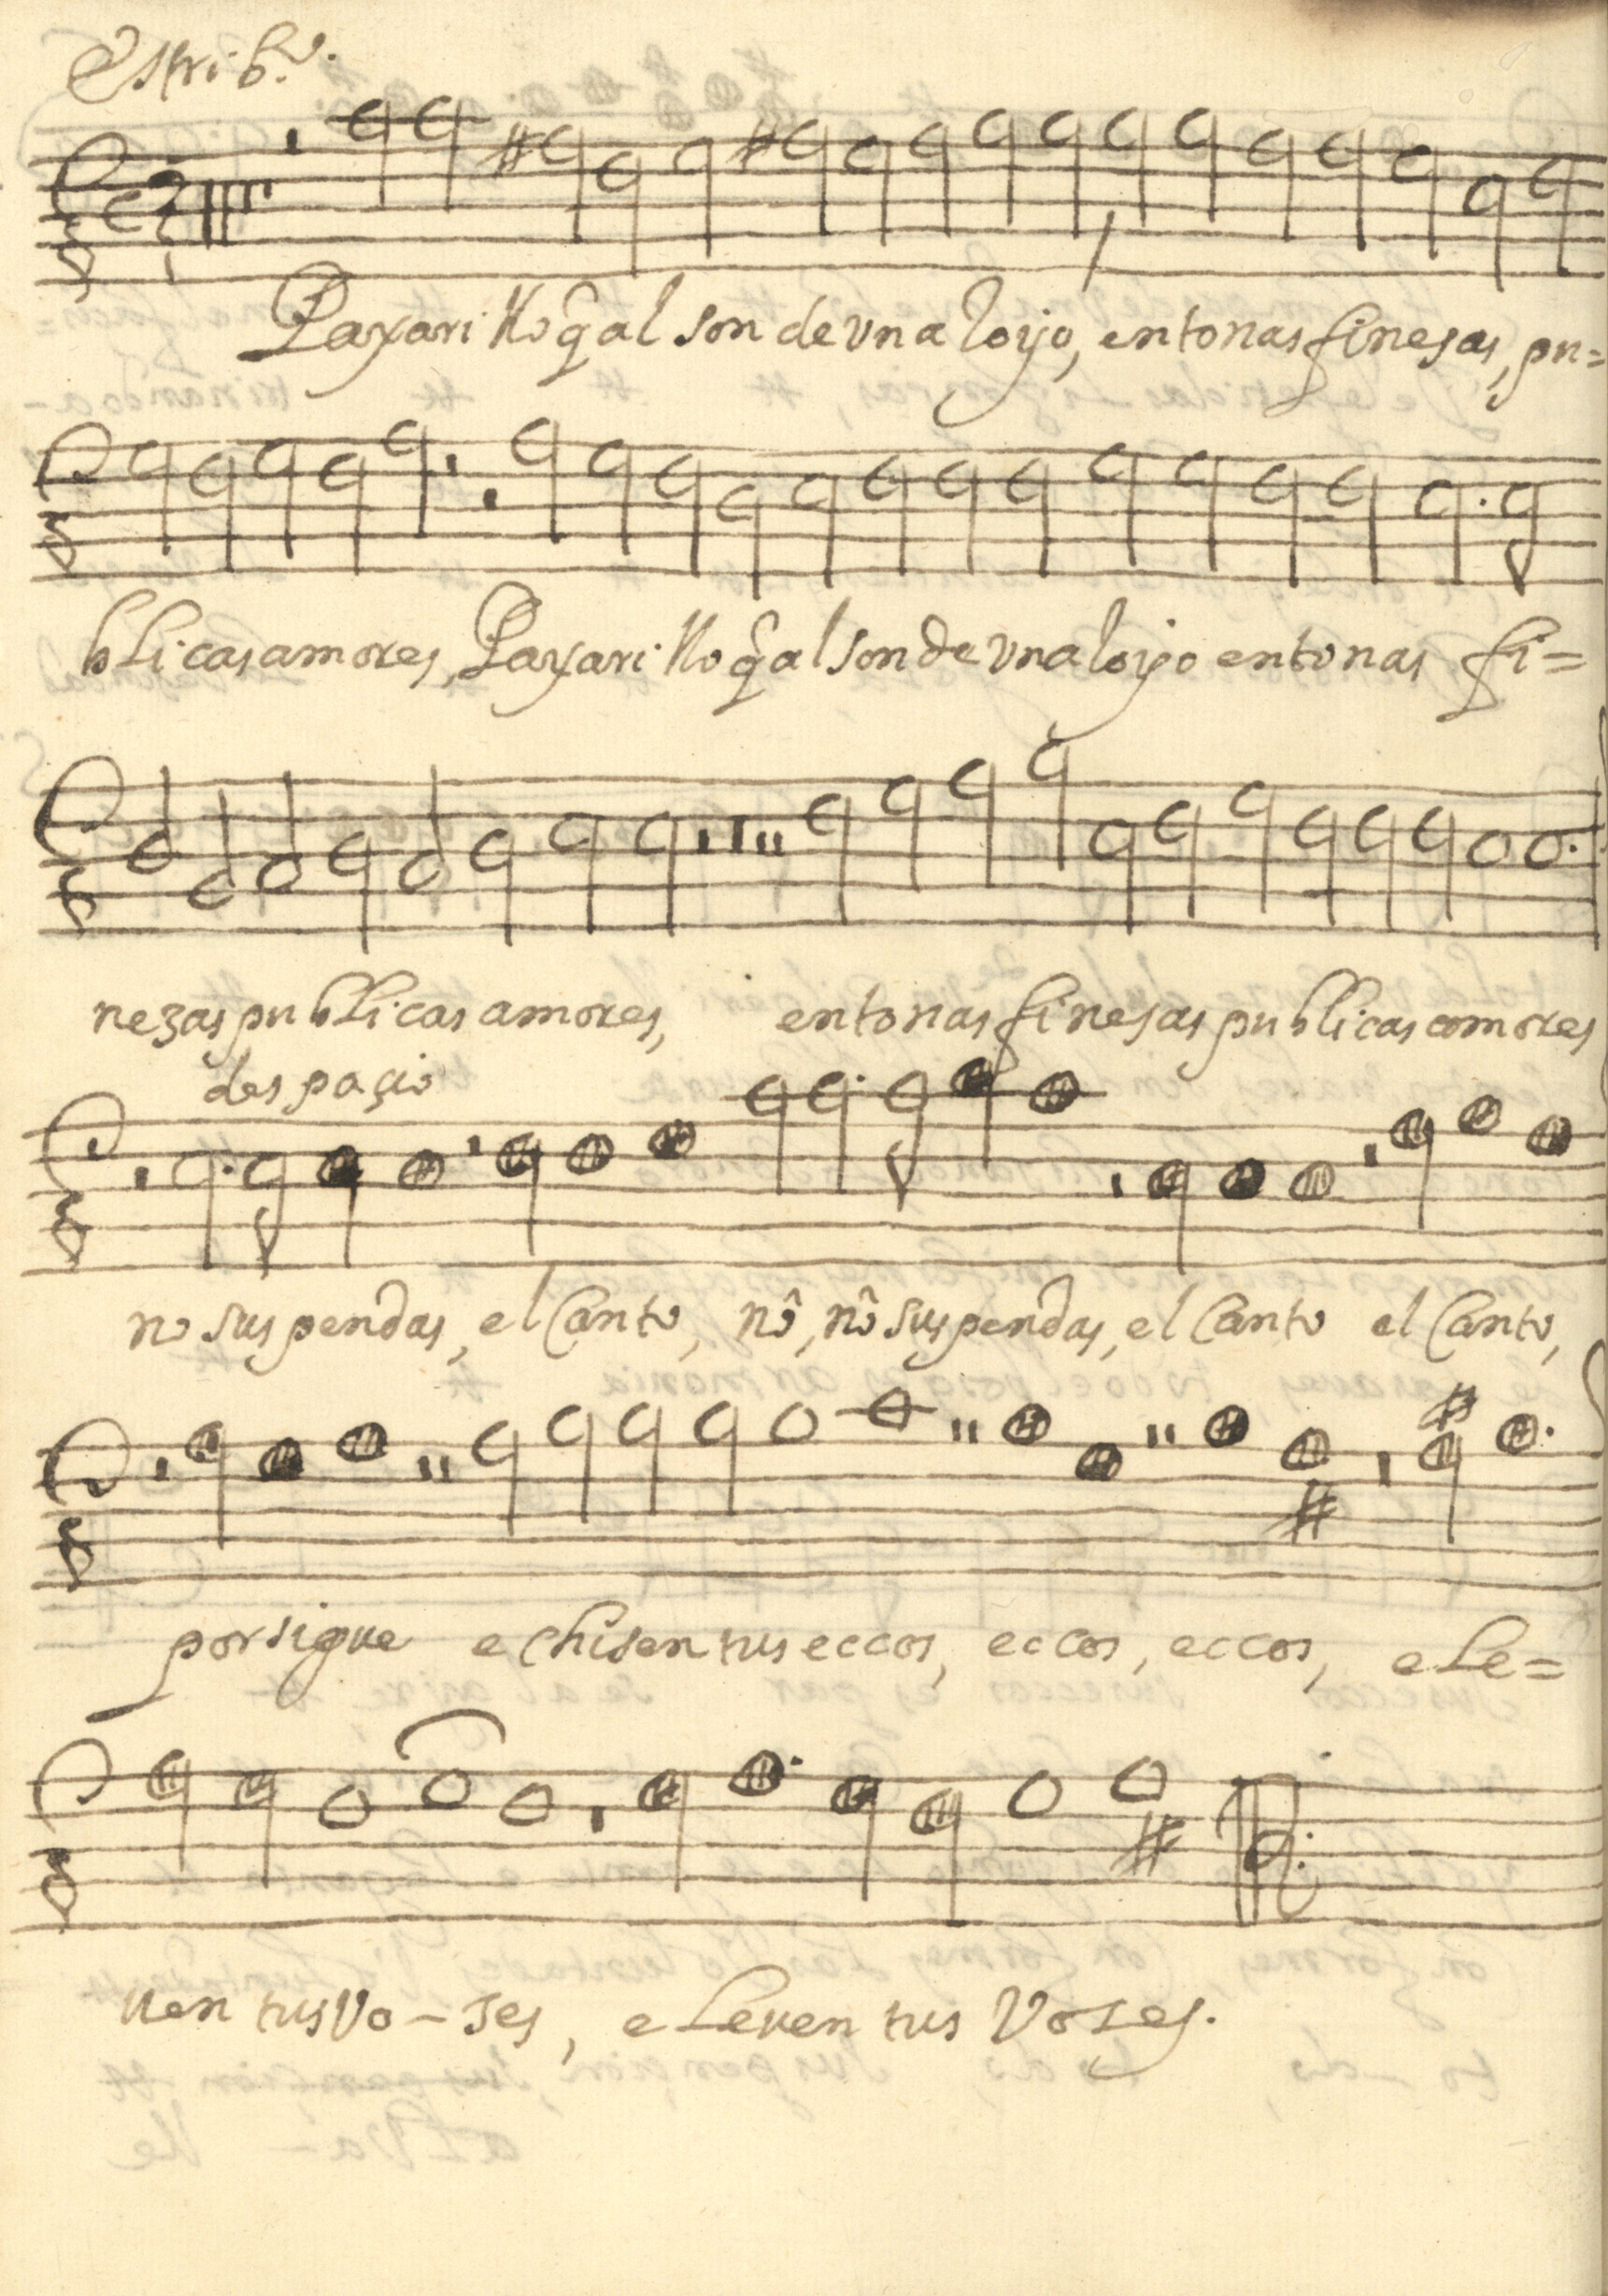 Estribo.
Paxarillo q̃ al son de vn aloyo, entonas finesas, pu=
blicas amores, Paxarillo q̃ al son de vn aloyo entonas fi=
nezas publicas amores, entonas finesas publicas amores
despaçio
no suspendas, el Canto, nô, nô suspendas, el Canto el Canto,
porsigue echisen tus eccos, eccos, eccos, ele=
uen tus Vo-ses, eleuen tus Voses.